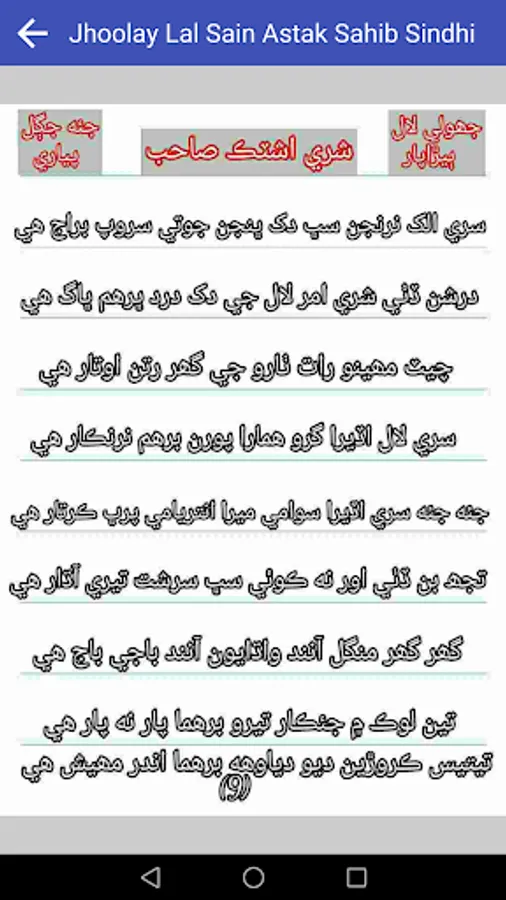 Jhoolay Lal Sain Astak Sahib Sindhi
جھولي لال
ٻيڙاپار
شري اشتڪ صاحب
جئه جڳل
پياري
سري الک نرنجن سڀ دک ڀنجن جوتي سروپ براج هي
درشن ڏئي شري امر لال جي دک درد ڀرهم ڀاگ هي
چيٽ مهينو رات ٺارو جي گھر رتن اوتار هي
سري لال اڏيرا گرو همارا پورن برهم نرنڪار هي
جئه جئه سري اڏيرا سوامي ميرا انتريامي پرڀ ڪرتار هي
تجھ بن ڏئي اور نه ڪوئي سڀ سرشت تيري آڌار هي
گھر گھر منگل آنند واڌايون آنند باجي باڄ هي
تين لوڪ ۾ جئڪار تيرو برهما پار نه پار هي
تيتيس ڪروڙين ديو دياوهه برهما اندر مهيش هي
(9)